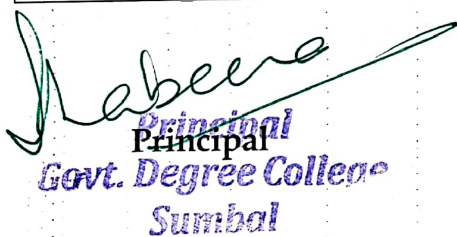 Principal
Principal
Govt. Degree College
Sumbal